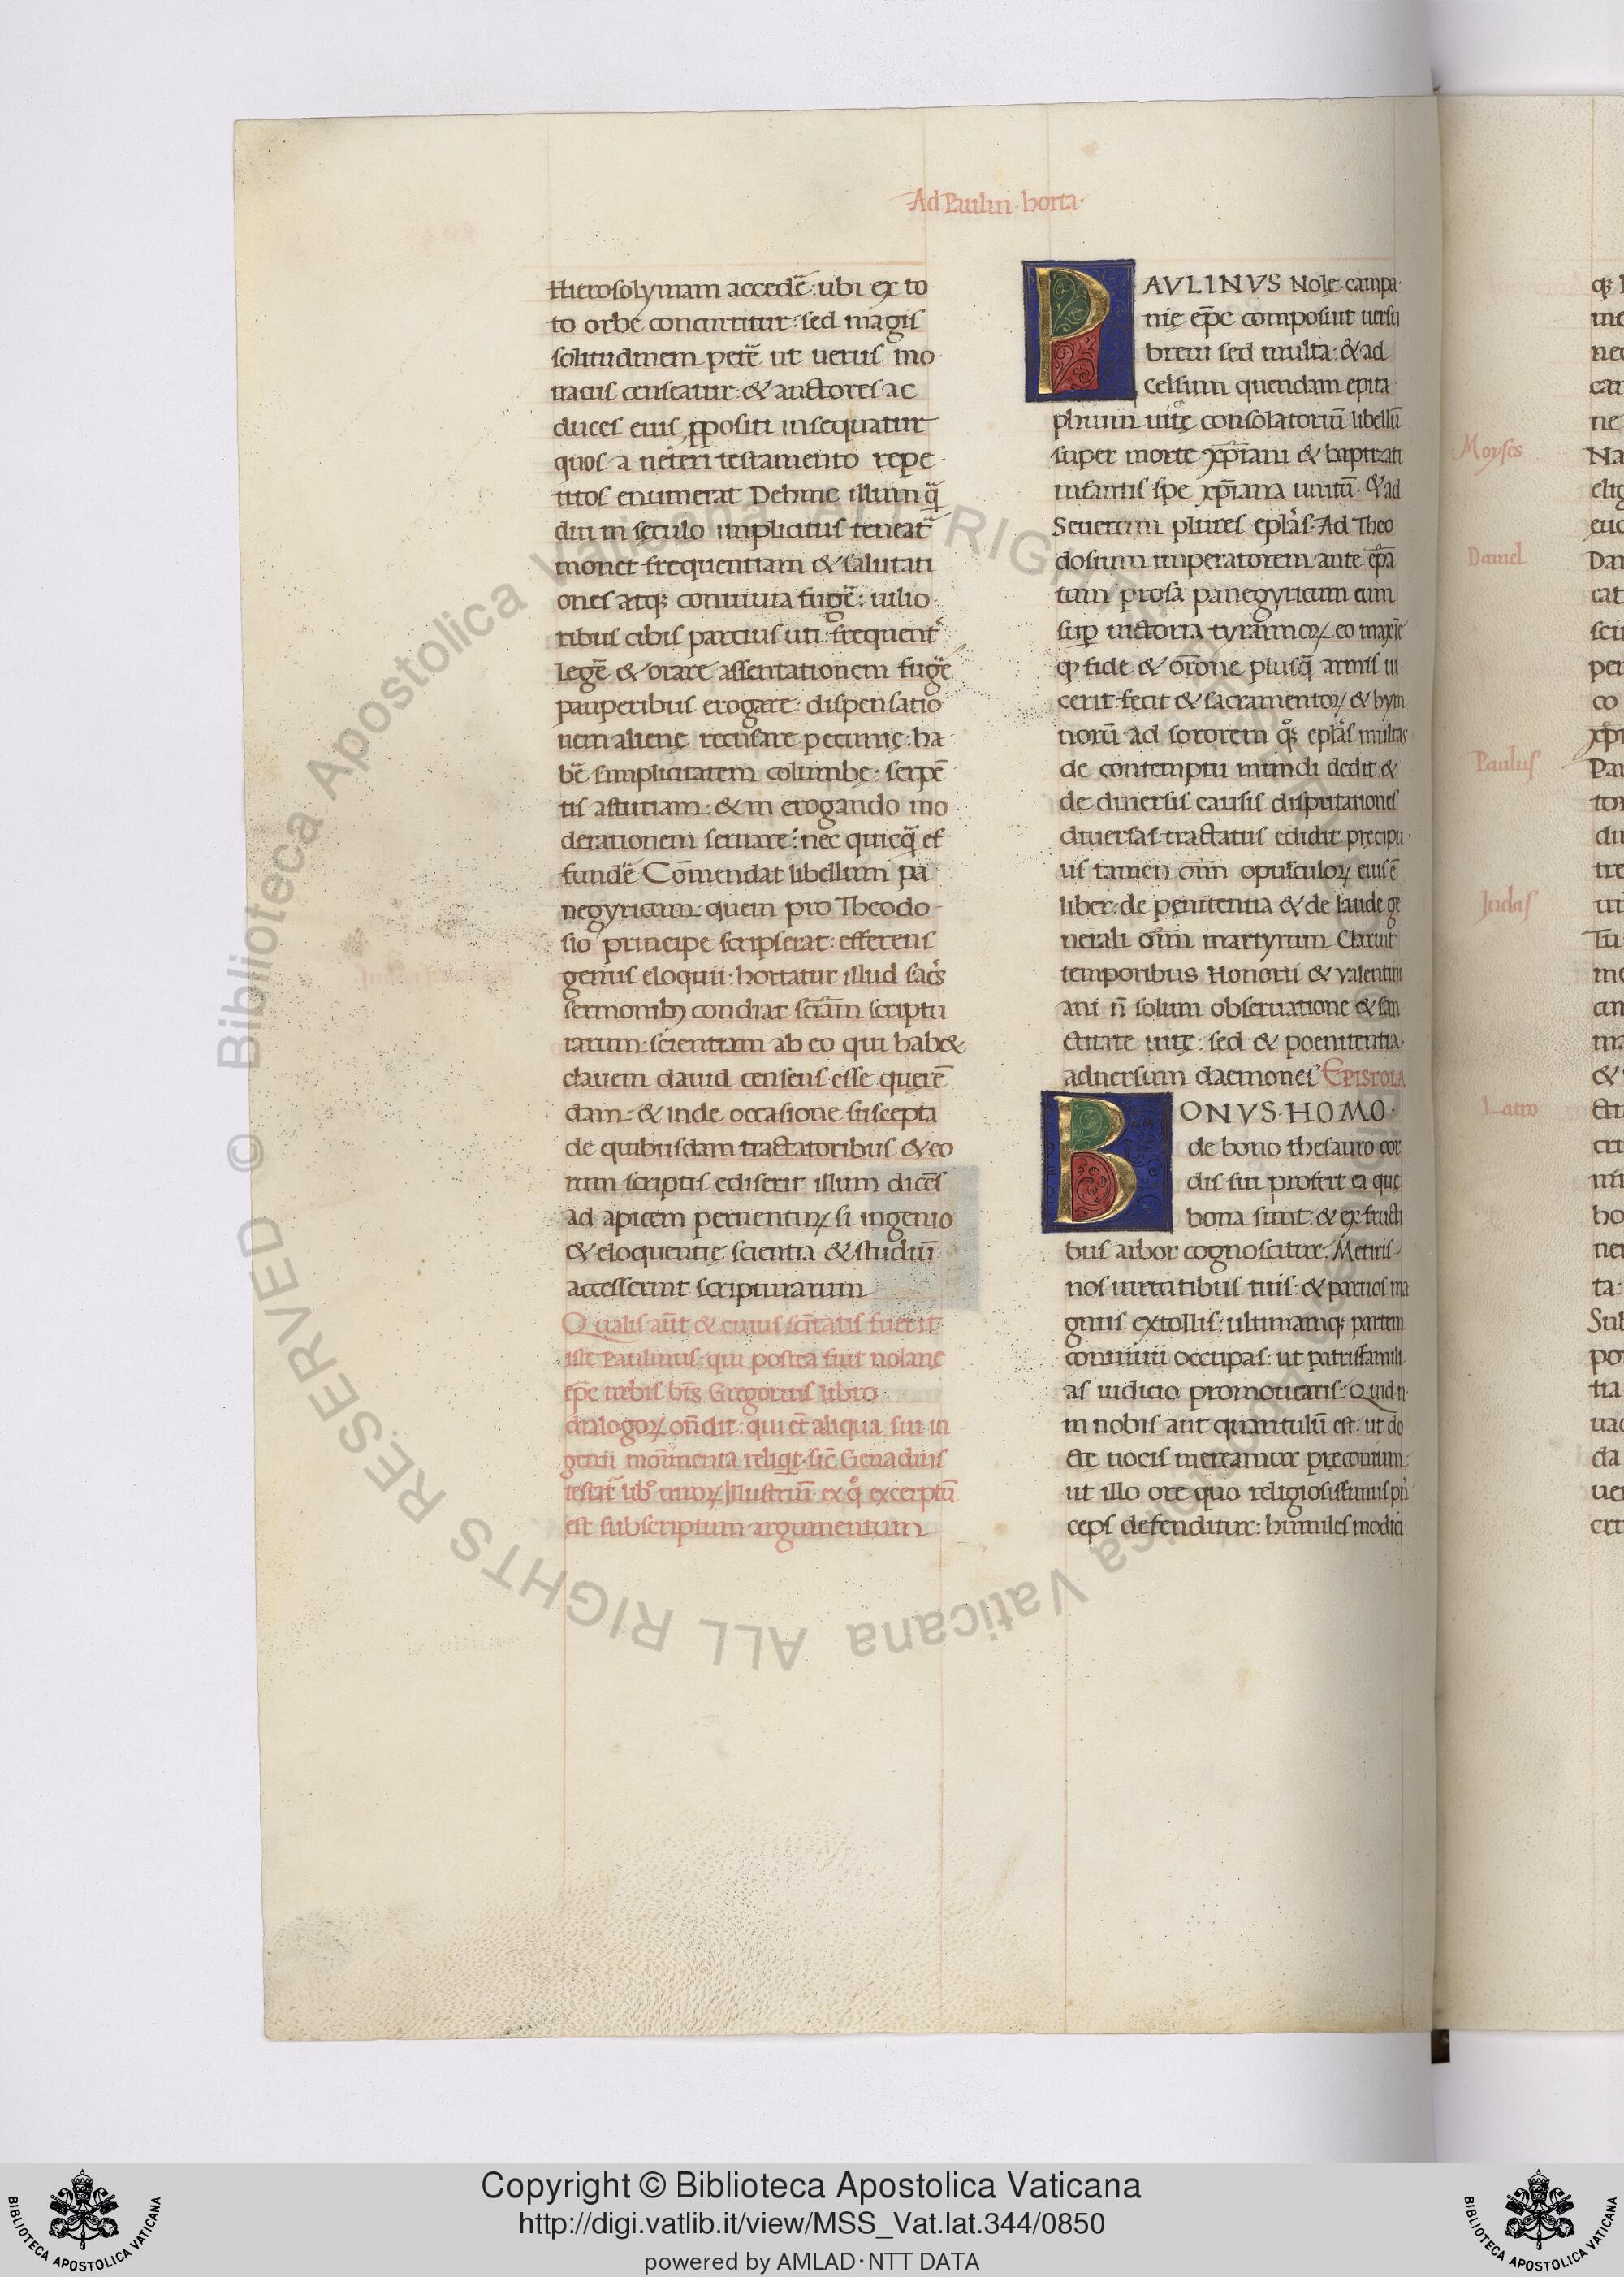 Ad Paulin horta·
Hierosolymam accedē: ubi ex to
to orbe concurritur: sed magis
solitudinem petē ut uerus mo
nacus censeatur: & auctores ac
duces eius ꝓpositi insequatur
quos a ueteri testamento repe
titos enumerat Dehinc illum q̄
diu in sęculo implicitus teneat̄
monet frequentiam & salutati
ones atqꝫ conuiuia fugē: uilio
ribus cibis parcius uti: frequent̄
legē & orare assentationem fugē
pauperibus erogare: dispensatio
nem alienę recusare pecunię: ha
bē simplicitatem columbę: serpē
tis astutiam: & in erogando mo
derationem seruare: nec quicq̄ ef
fundē Cōmendat libellum pa
negyricum quem pro Theodo
sio principe scripserat: efferens
genus eloquii: hortatur illud sac̄s
sermonibꝫ condiat sc̄am scriptu
rarum: scientiam ab eo qui hab&
clauem dauid censens esse querē
dam: & inde occasione suscepta
de quibusdam tractatoribus & eo
rum scriptis ediserit illum dicēs
ad apicem peruenturꝝ si ingenio
& eloquentię scientia & studiū
accesserint scripturarum
Qualis aūt & cuius sc̄itatis fuerit
iste Paulinus: qui postea fuit nolanę
ep̄c urbis bt̄s Gregorius libro
dialogoꝝ on̄dit: qui et̄ aliqua sui in
genii monīmenta reliqt̄: sic̄ Genadius
testat̄ libº uiroꝝ Illustriū ex qº excerptū
est subscriptum argumentum
PAVLINVS Nolę campa
nię ep̄c composuit uersu
breui sed multa: & ad
celsum quendam epita
phium uitę consolatoriū libellū
super morte xp̄iani & baptizati
infantis spe xp̄iana unitū. & ad
Seuerum plures ep̄las. Ad Theo
dosium imperatorem ante ep̄a
tum prosa panegyricum eum
suꝑ uictoria tyrannoꝝ eo maxīe
qꝫ fide & or̄one plusq̄ armis ui
cerit: fecit & sacramentoꝝ & hym
norū ad sororem qºqꝫ ep̄las multas
de contemptu mundi dedit: &
de diuersis causis disputationes
diuersas: tractatus edidit pręcipu
us tamen om̄n opusculoꝝ eius ē
liber: de pęnitentia & de laude ge
nerali om̄n martyrum Claruit
temporibus Honorii & valentini
ani n̄ solum obseruatione & san
ctitate uitę: sed & poenitentia
aduersum daemones EPISTOLA
BONVS·HOMO·
de bono thesauro cor
dis sui profert ea quę
bona sunt: & ex fructi
bus arbor cognoscitur. Metiris
nos uirtutibus tuis: & paruos ma
gnus extollis: ultimamqꝫ partem
conuiuii occupas: ut patrisfamili
as iudicio promouearis. Quid n̄
in nobis aut quantulū est: ut do
ctę uocis mereamur pręconium:
ut illo ore quo religiosissimus pn̄
ceps defenditur: humiles modici
Moyses
Daniel
Paulus
Judas
Latro
Copyright © Biblioteca Apostolica Vaticana
http://digi.vatlib.it/view/MSS_Vat.lat.344/0850
powered by AMLAD·NTT DATA
BIBLIOTECA APOSTOLICA VATICANA
BIBLIOTECA APOSTOLICA VATICANA
© Biblioteca Apostolica Vaticana ALL RIGHTS RESERVED